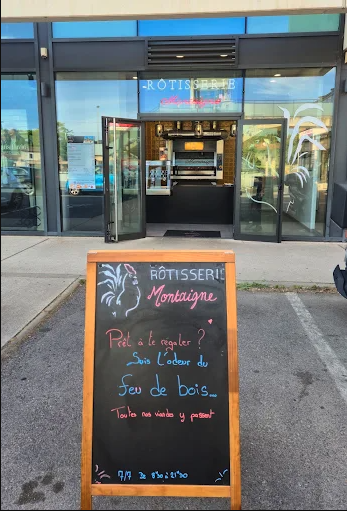 RÔTISSERIE
Montaigne
RÔTISSERIE
Montaigne
Prêt à te régaler ?
Suis l'odeur du
feu de bois...
Toutes nos viandes y passent
7/7 De 8h30 à 21h30